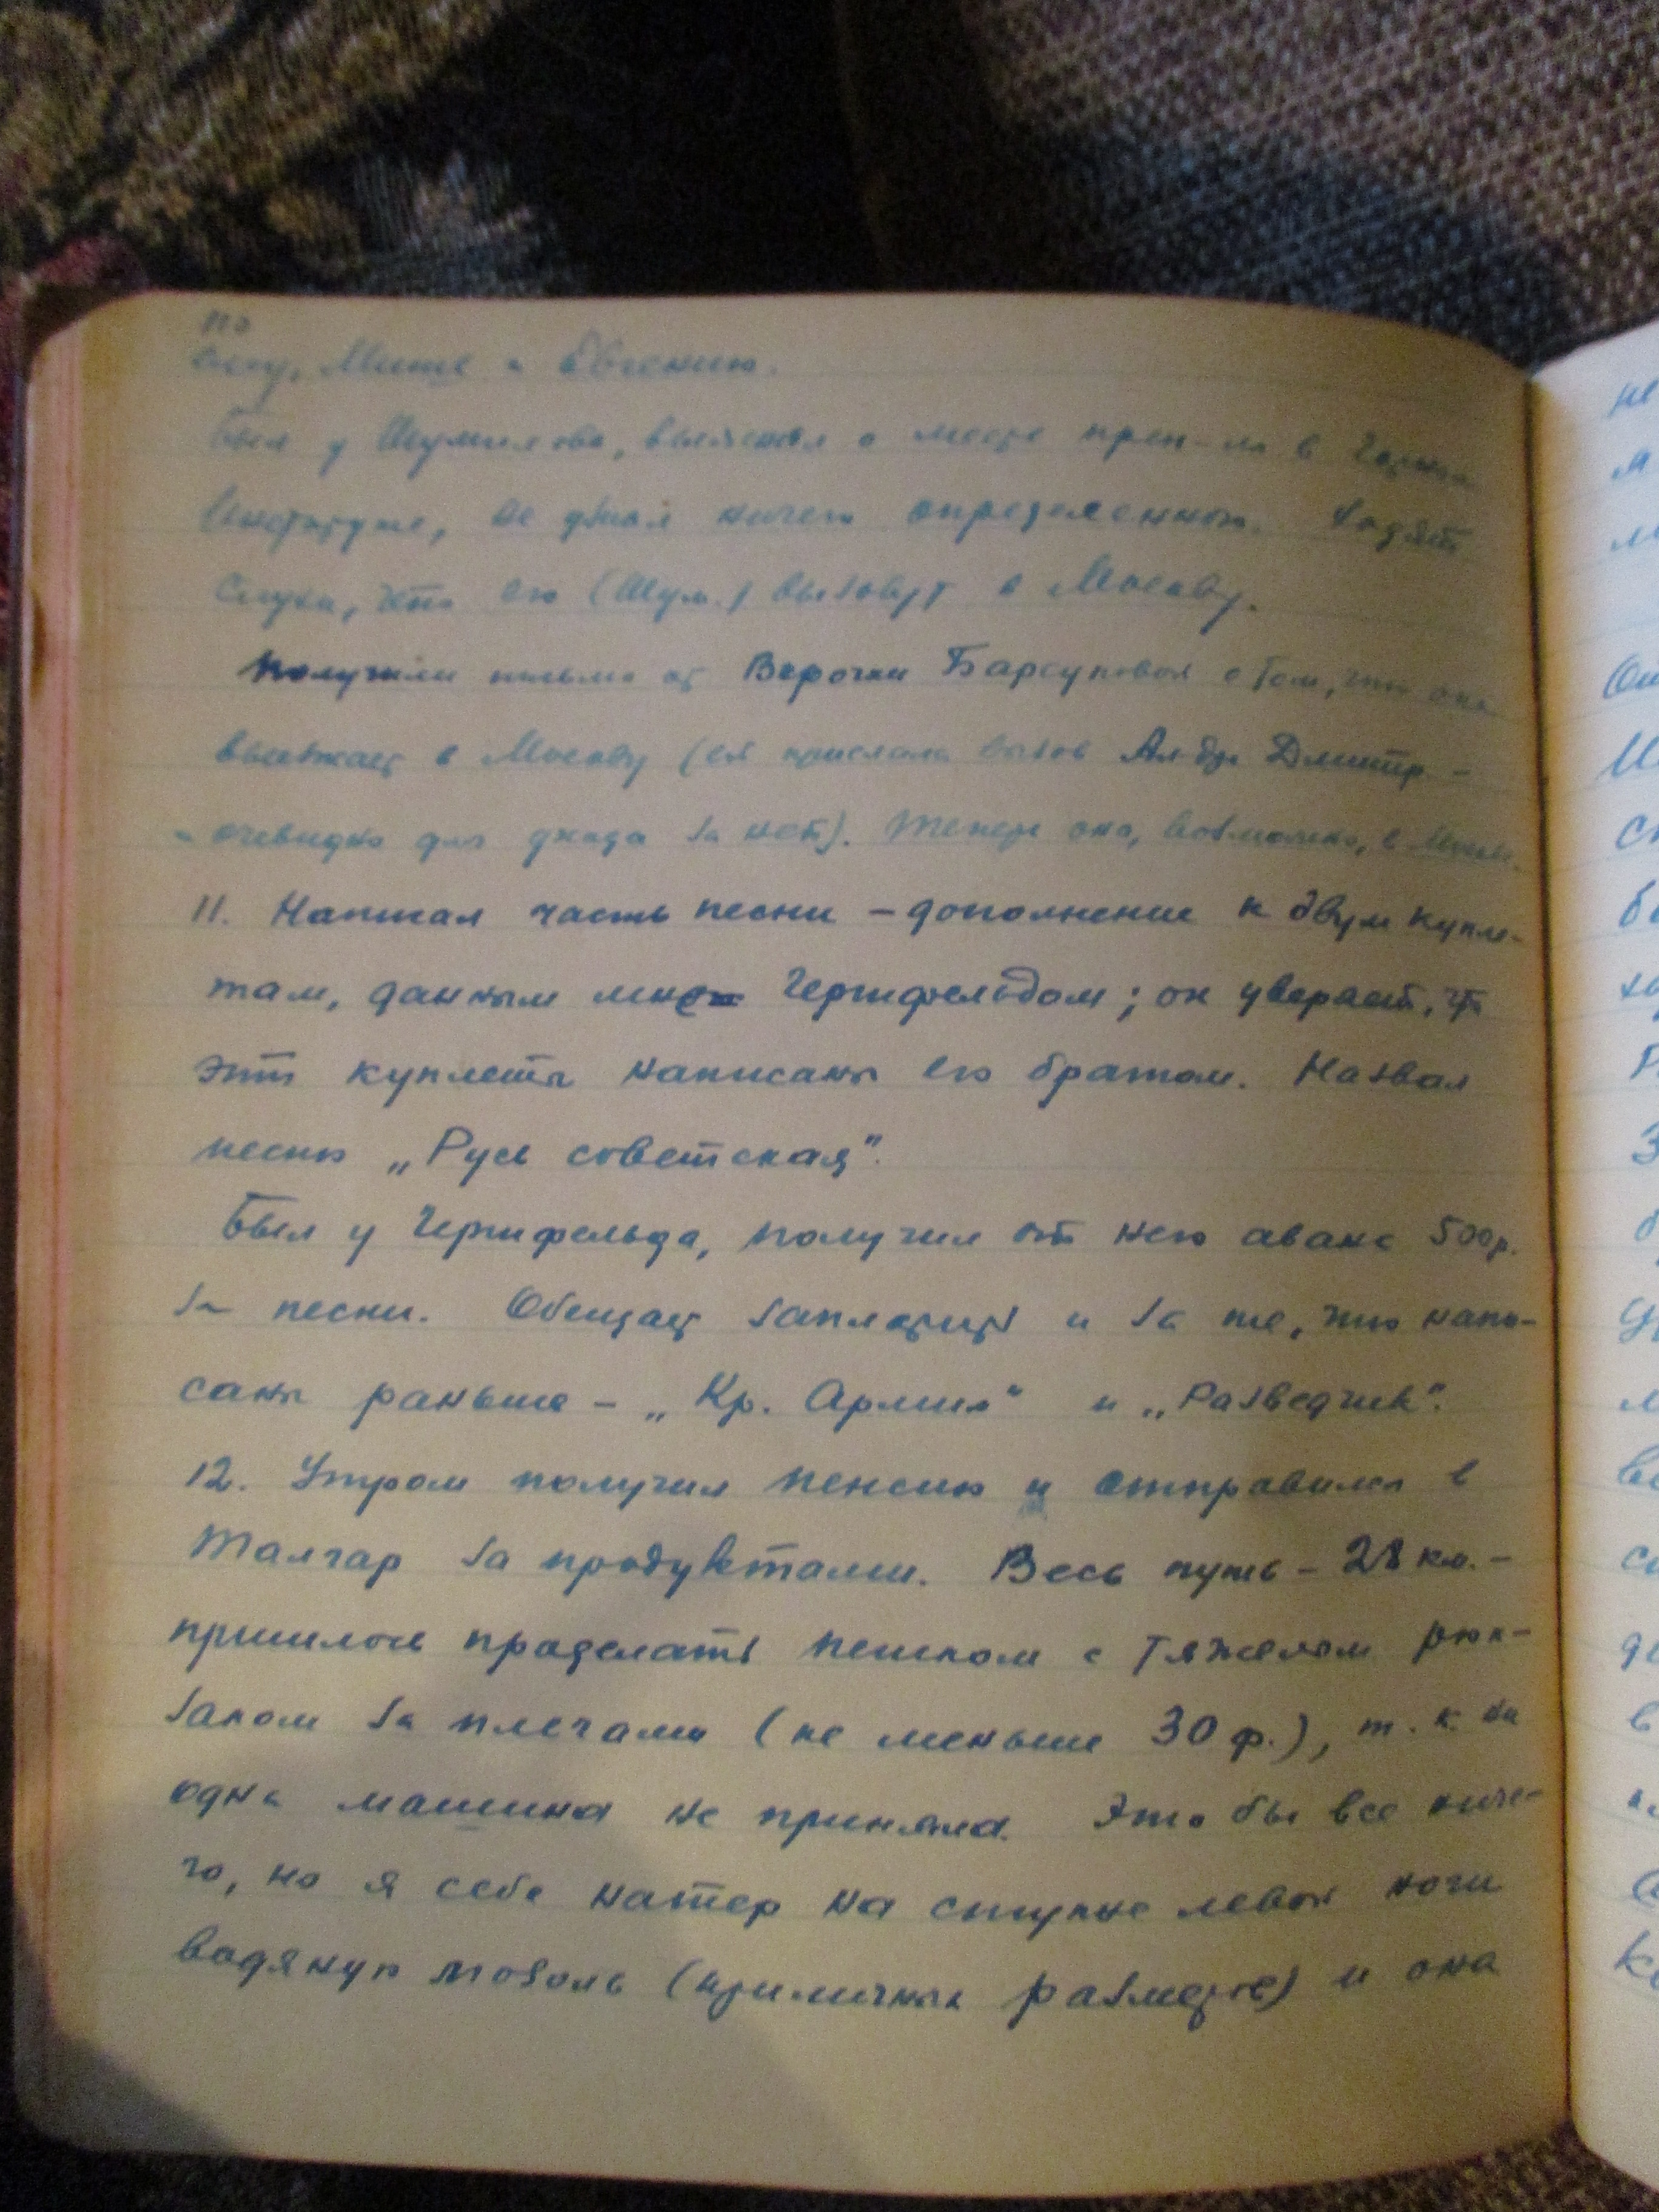 110
Мише и Евгению.
Был у Шумилова, выяснял о месте преп-ля в Горном
Институте, не узнал ничего определенного. Ходят
слухи, что его (Шум.) вызовут в Москву.
Получили письмо от Верочки Барсуковой о том, что она
выезжает в Москву (ей прислала вызов Ал-др Дмитр. –
– очевидно для ухода за ней). Теперь она, возможно, в
11. Написал часть песни – дополнение к двум купле-
там, данным мне Герчфельдом; он уверяет, что
эти куплеты написаны его братом. Назвал
песню „Русь советская".
Был у Герчфельда, получил от него аванс 500 р.
за песни. Обещает заплатить и за те, что напи-
саны раньше – „Кр. Армия" и „Разведчик".
12. Утром получил пенсию и отправился в
Талгар за продуктами. Весь путь – 28 км. –
пришлось проделать пешком с тяжелом рюк-
заком за плечами (не меньше 30 ф.), т. к. ни
одна машина не приняла. Это бы все ниче-
го, но я себе натер на ступне левой ноги
водяную мозоль (приличных размеров) и она